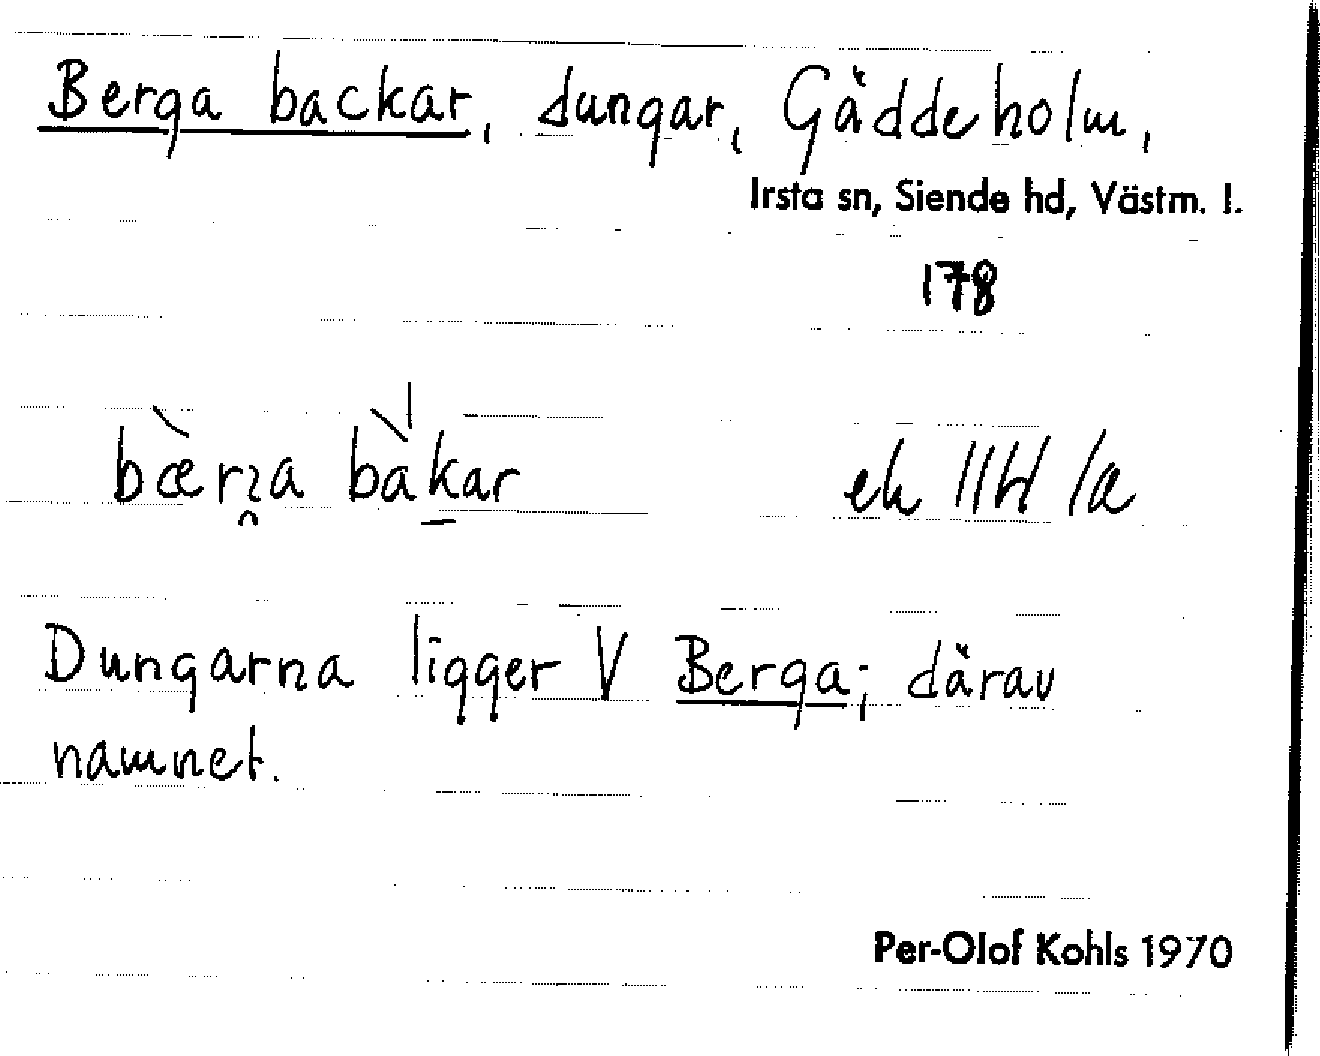 Berga backar, dungar, Gäddeholm,
Irsta sn, Siende hd, Västm. l.
178
bæ̀rɿ̯a bàk̠ar
Dungarna ligger V Berga; därav
namnet.
Per-Olof Kohls 1970